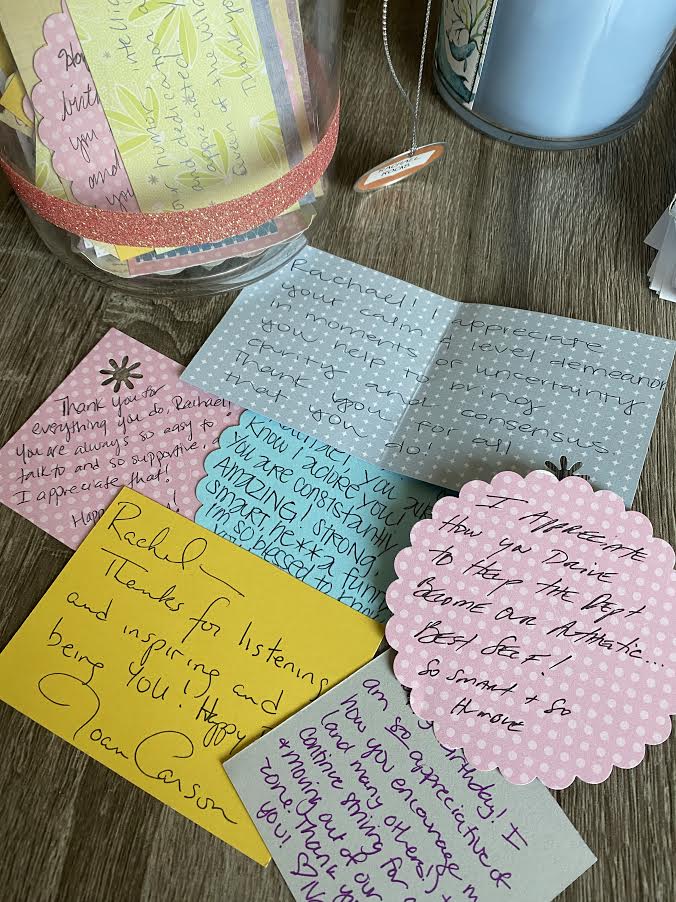 Ho
birth
you
and
you
humor, intelli
and dedication
appreciated
Queen of the
Thank you
RACHAEL
Rachael! I appreciate
your calm d level demeanor
in moments of uncertainty
you help to bring
clarity and consensus.
Thank you for all
that you do!
Thank you for
everything you do, Rachael!
you are always so easy to
talk to and so supportive.
I appreciate that!
Happ
Know I adore you!
You are consistantly
AMAZING! Strong,
smart, he** a funn
I'm so blessed to know
Rachel—
Thanks for listening
and inspiring and
being YOU! Happy
Joan Carson
I APPRECIATE
HOW YOU DRIVE
TO HELP THE DEPT
BECOME OUR AUTHENTIC...
BEST SELF!
SO SMART + SO
HUMBLE
Birthday! I
am so appreciative of
how you encourage m
(and many others!)
continue striving for
+ moving out of our
zone. Thank you
you!